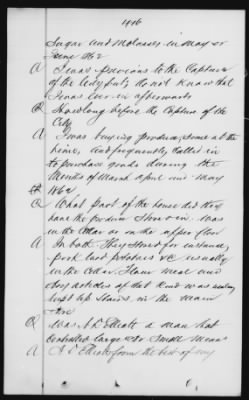 1446
Sugar and Molasses in May or
June 1862
A I was previous to the Capture
of the City but do not know that
I was ever in afterwards
Q How long before the Capture of the
City
A I was buying produce, some at the
time, and frequently called in
to purchase goods during the
Months of March April and May
1862
Q What part of the house did they
have the produce store in was
in the Cellar or on the upper floor
A In both They stored for instance
pork lard potatoes &c usually
in the Cellar. Flour meal and
dry articles of that kind was
kept up Stairs, in the main
Store
Q Was A. F. Elliott a man that
controlled large or Small means
A A. F. Elliott from the best of my